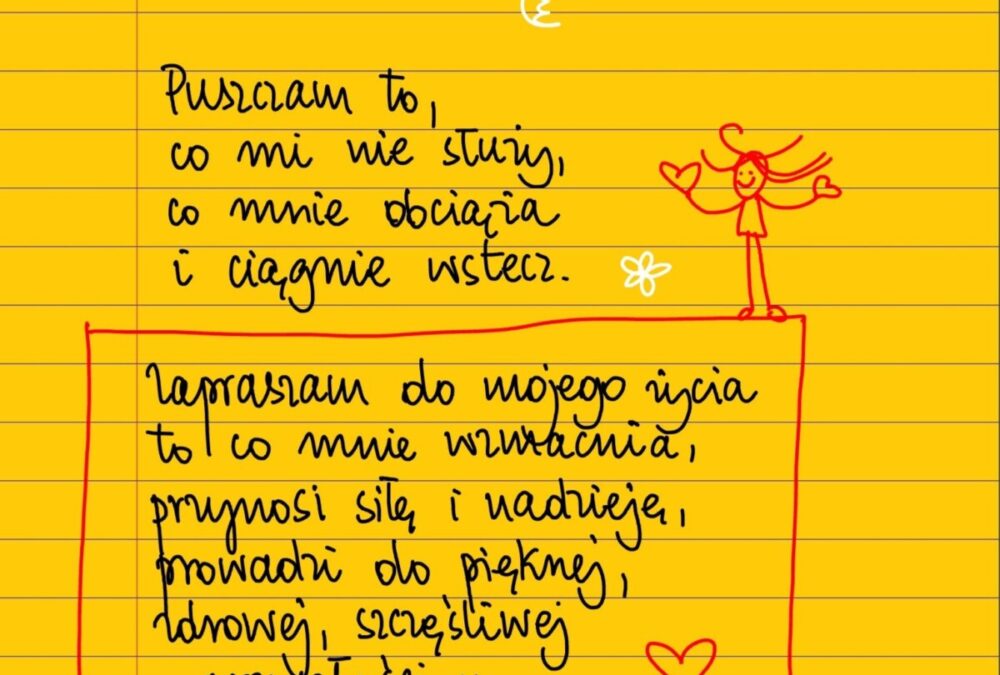 Puszczam to,
co mi nie służy,
co mnie obciąża
i ciągnie wstecz.
Zapraszam do mojego życia
to, co mnie wzmacnia,
przynosi siłę i nadzieję,
prowadzi do pięknej,
zdrowej, szczęśliwej